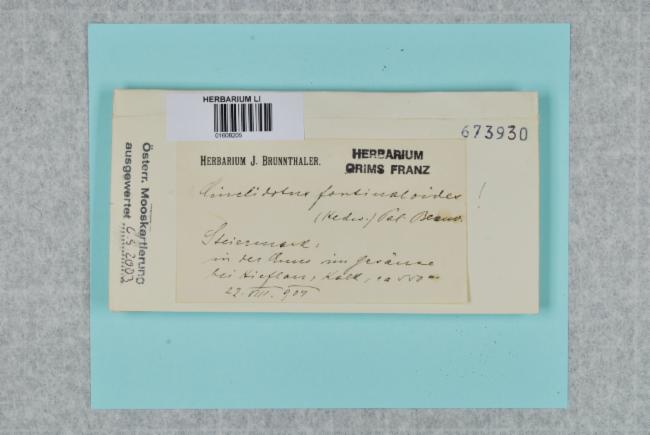 HERBARIUM LI
01608205
673930
HERBARIUM J. BRUNNTHALER.
HERBARIUM
GRIMS FRANZ
Cinclidotus fontinaloides !
(Hedw.) Pal. Beauv.
Steiermark:
in der Enns im Gesäuse
bei Hieflau, Kalk, ca
22. VIII. 904
Österr. Mooskartierung
ausgewertet 6.5.2003